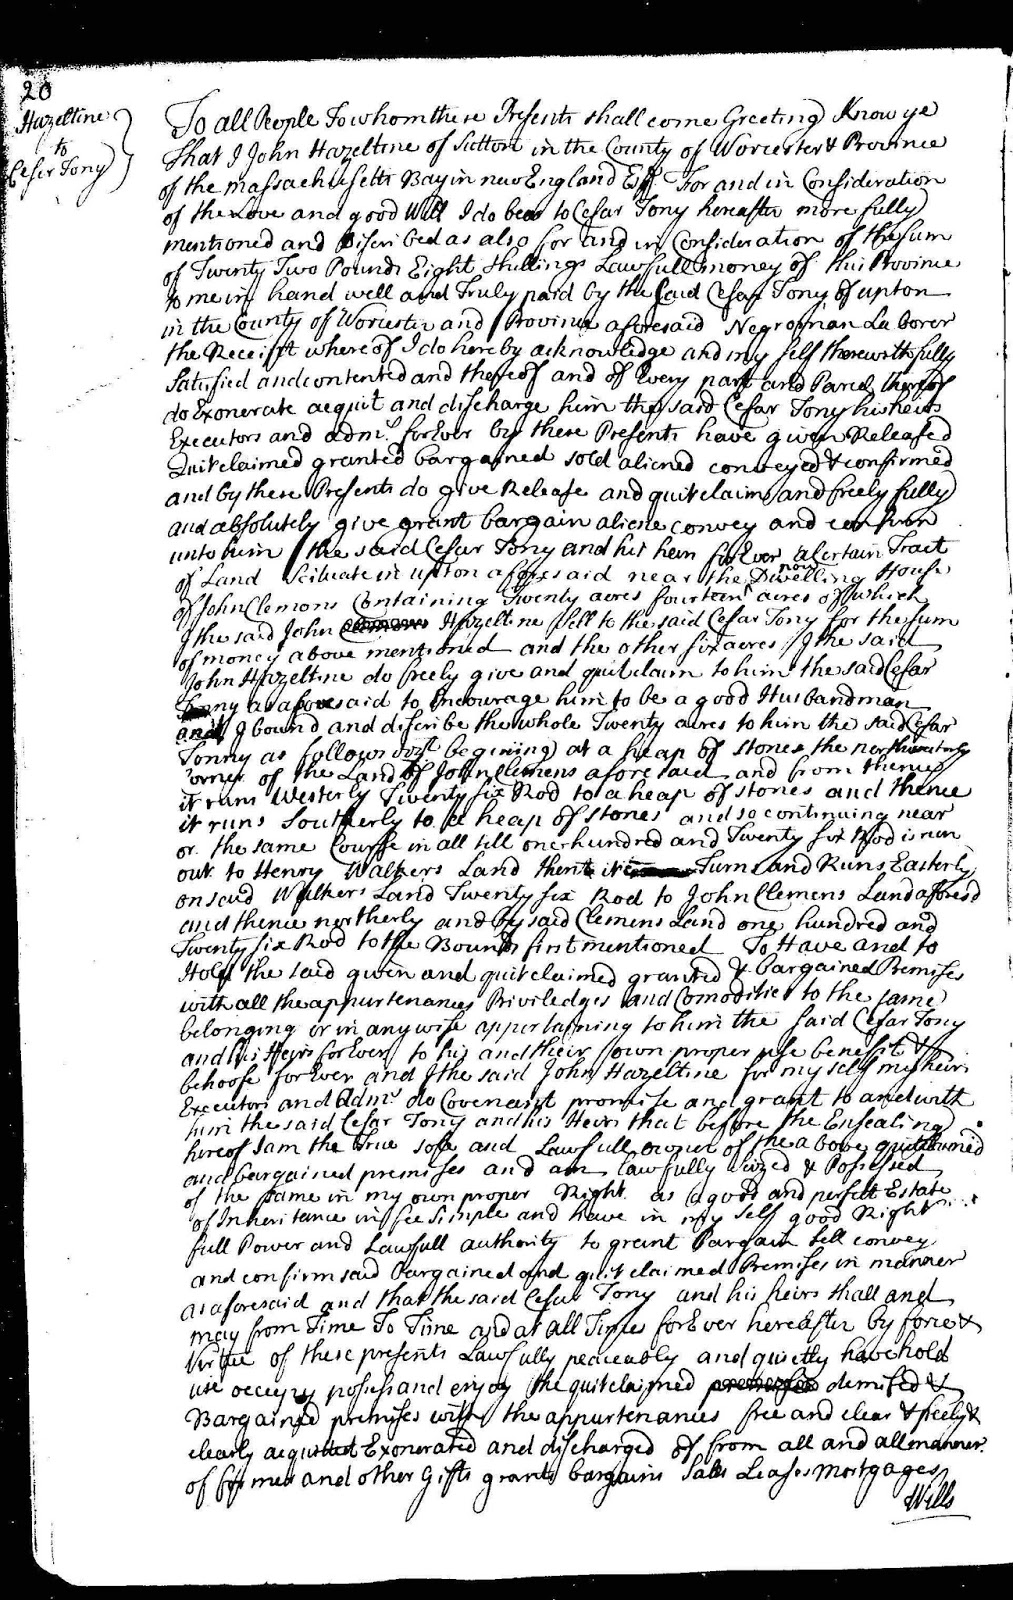 20
Hazeltine
to
Cesar Tony
To all People To whom these Presents shall come Greeting Know ye
that I John Hazeltine of Sutton in the County of Worcester & Province
of the massachusetts Bay in new England Esq For and in Consideration
of the Love and good Will I do bear to Cesar Tony hereafter more fully
mentioned and Discribed as also for and in Consideration of the sum
of Twenty Two Pounds Eight Shillings Lawfull money of this Province
to me in hand well and Truly paid by the Said Cesar Tony of upton
in the County of Worcester and Province aforesaid Negroman Laborer
the Receipt whereof I do hereby acknowledge and my self therewith fully
Satisfied and contented and thereof and of Every part and Parcel thereof
do Exonerate acquit and discharge him the said Cesar Tony his heirs
Executors and admrs. forEver by these Presents have given Released
Quitclaimed granted bargained sold aliened conveyed & confirmed
and by these Presents do give Release and quitclaim and freely fully
and absolutely give grant bargain aliene convey and confirm
unto him the said Cesar Tony and his heirs forEver a Certain Tract
of Land Scituate in upton aforesaid near the now Dwelling House
of John Clemons Containing Twenty acres fourteen acres of which
I the said John Hazeltine Sell to the said Cesar Tony for the sum
of money above mentioned and the other six acres I the said
John Hazeltine do freely give and quitclaim to him the said Cesar
Tonny as aforesaid to Encourage him to be a good Husbandman
and I bound and discribe the whole Twenty acres to him the said Cesar
Tonny as follows vizt begining at a heap of stones the northwesterly
corner of the Land of John Clemens aforesaid and from thence
it runs Westerly Twenty six Rod to a heap of stones and thence
it runs Southerly to a heap of stones and so continuing near
or the same Course in all till one hundred and Twenty six Rod is run
out to Henry Walkers Land then it Turns and Runs Easterly
on said Walkers Land Twenty six Rod to John Clemens Land aforesd
and thence northerly and by said Clemens Land one hundred and
Twenty six Rod to the Bounds first mentioned To Have and to
Hold the said given and quitclaimed granted & bargained Premises
with all the appurtenances Priviledges and Comodities to the same
belonging or in any wise appertaining to him the said Cesar Tony
and his Heirs forEver to his and their own proper use benefit &
behoofe forEver and I the said John Hazeltine for my self my heirs
Executors and Admrs do Covenant promise and grant to and with
him the said Cesar Tony and his Heirs that before the Ensealing
hereof I am the true sole and Lawfull owner of the above quitclaimed
and bargained premises and am lawfully seized & Possessed
of the same in my own proper Right as a good and perfect Estate
of Inheritance in fee simple and have in my self good Right
full Power and Lawfull authority to grant Bargain Sell convey
and confirm said Bargained and quitclaimed Premises in manner
as aforesaid and that the said Cesar Tony and his heirs shall and
may from Time To Time and at all Times forEver hereafter by force &
Virtue of these presents Lawfully peaceably and quietly have hold
use occupy possess and enjoy the quitclaimed demised &
Bargained premises with the appurtenances free and clear & freely &
clearly acquitted Exonerated and discharged of from all and all manner
of former and other Gifts grants bargains Sales Leases Mortgages
Wills